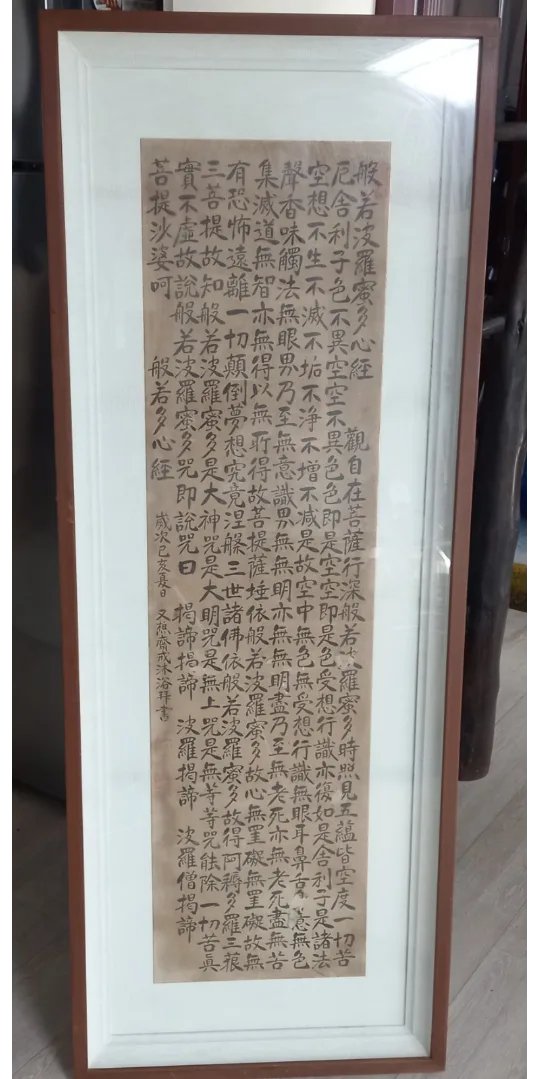 般若波羅蜜多心經 觀自在菩薩行深般若波羅蜜多時照見五蘊皆空度一切苦
厄舍利子色不異空空不異色色即是空空即是色受想行識亦復如是舍利子是諸法
空想不生不滅不垢不淨不增不減是故空中無色無受想行識無眼耳鼻舌意無色
聲香味觸法無眼界乃至無意識界無無明亦無無明盡乃至無老死亦無老死盡無苦
集滅道無智亦無得以無所得故菩提薩埵依般若波羅蜜多故心無罣礙無罣礙故無
有恐怖遠離一切顛倒夢想究竟涅槃三世諸佛依般若波羅蜜多故得阿耨多羅三藐
三菩提故知般若波羅蜜多是大神咒是大明咒是無上咒是無等等咒能除一切苦真
實不虛故說般若波羅蜜多咒即說咒曰 揭諦揭諦 波羅揭諦 波羅僧揭諦
菩提沙婆呵 般若多心經 歲次己亥夏日 又想齋戒沐浴拜書